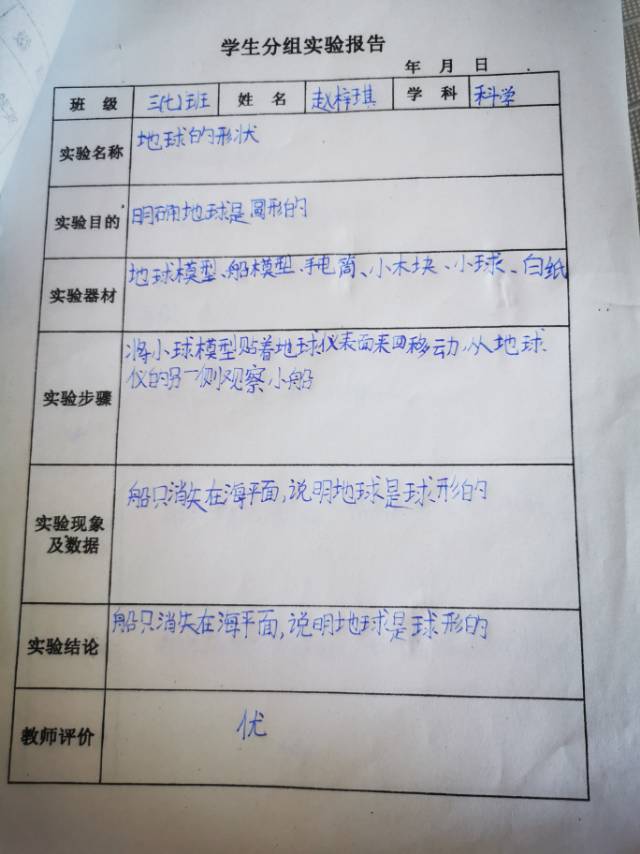 学生分组实验报告
年 月 日
班 级 三(七)班 姓 名 赵梓琪 学 科 科学
实验名称 地球的形状
实验目的 明确地球是圆形的
实验器材 地球模型、船模型、手电筒、小木块、小球、白纸
实验步骤 将小球模型贴着地球仪表面来回移动,从地球
仪的另一侧观察小船
实验现象
及数据 船只消失在海平面,说明地球是球形的
实验结论 船只消失在海平面,说明地球是球形的
教师评价 优